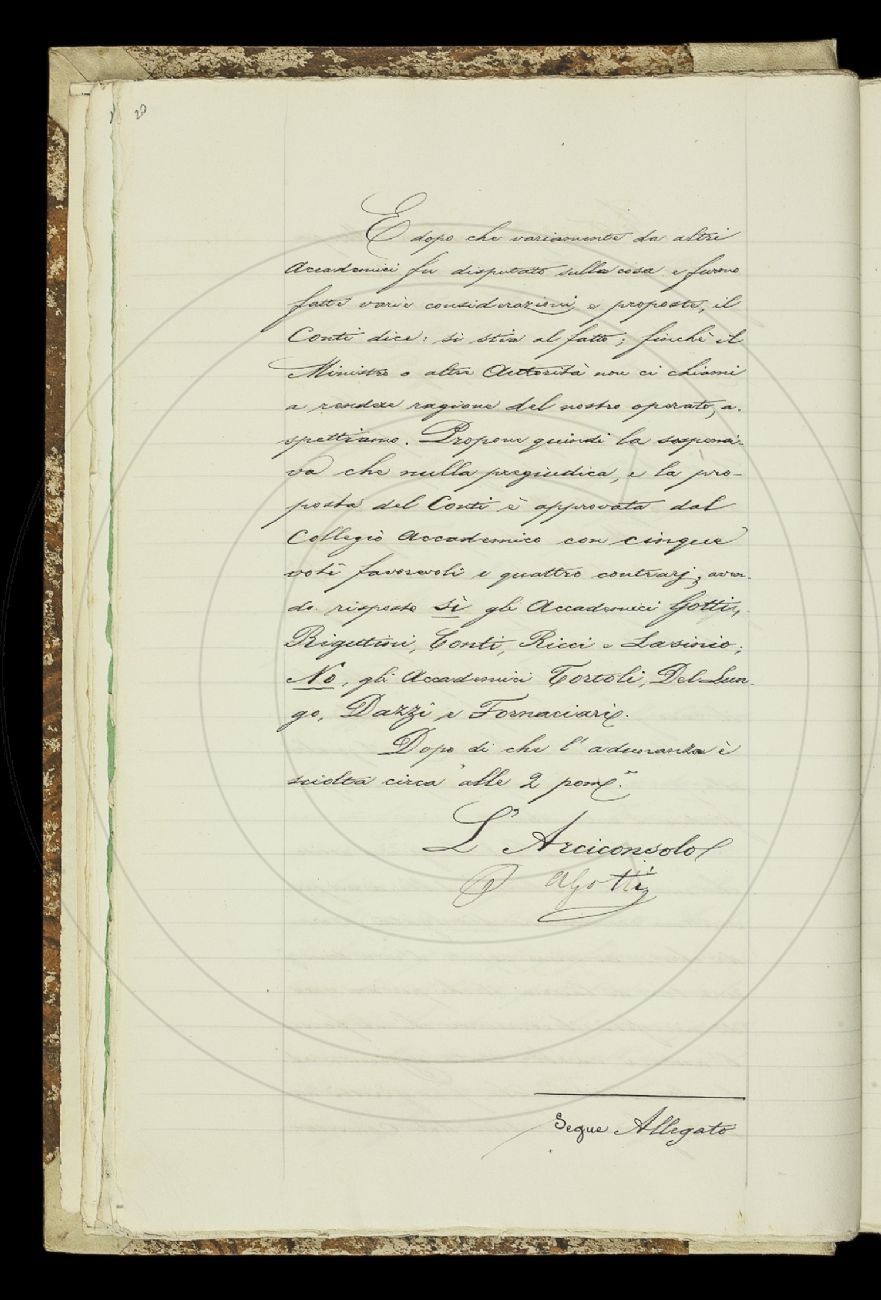 20
E dopo che variamente da altri
Accademici fu disputato sulla cosa e furono
fatte varie considerazioni e proposte, il
Conti dice: si stia al fatto; finchè il
Ministro o altra Autorità non ci chiami
a rendere ragione del nostro operato, a-
spettiamo. Propone quindi la sospensi-
va che nulla pregiudica, e la pro-
posta del Conti è approvata dal
Collegio Accademico con cinque
voti favorevoli e quattro contrarj; aven-
do risposto sì gli Accademici Gotti,
Rigutini, Conti, Ricci e Lasinio;
No, gli Accademici Tortoli, Del Lun-
go, Dazzi e Fornaciari.
Dopo di che l'adunanza è
sciolta circa alle 2 pom.e
L'Arciconsolo
AGotti
Segue Allegato